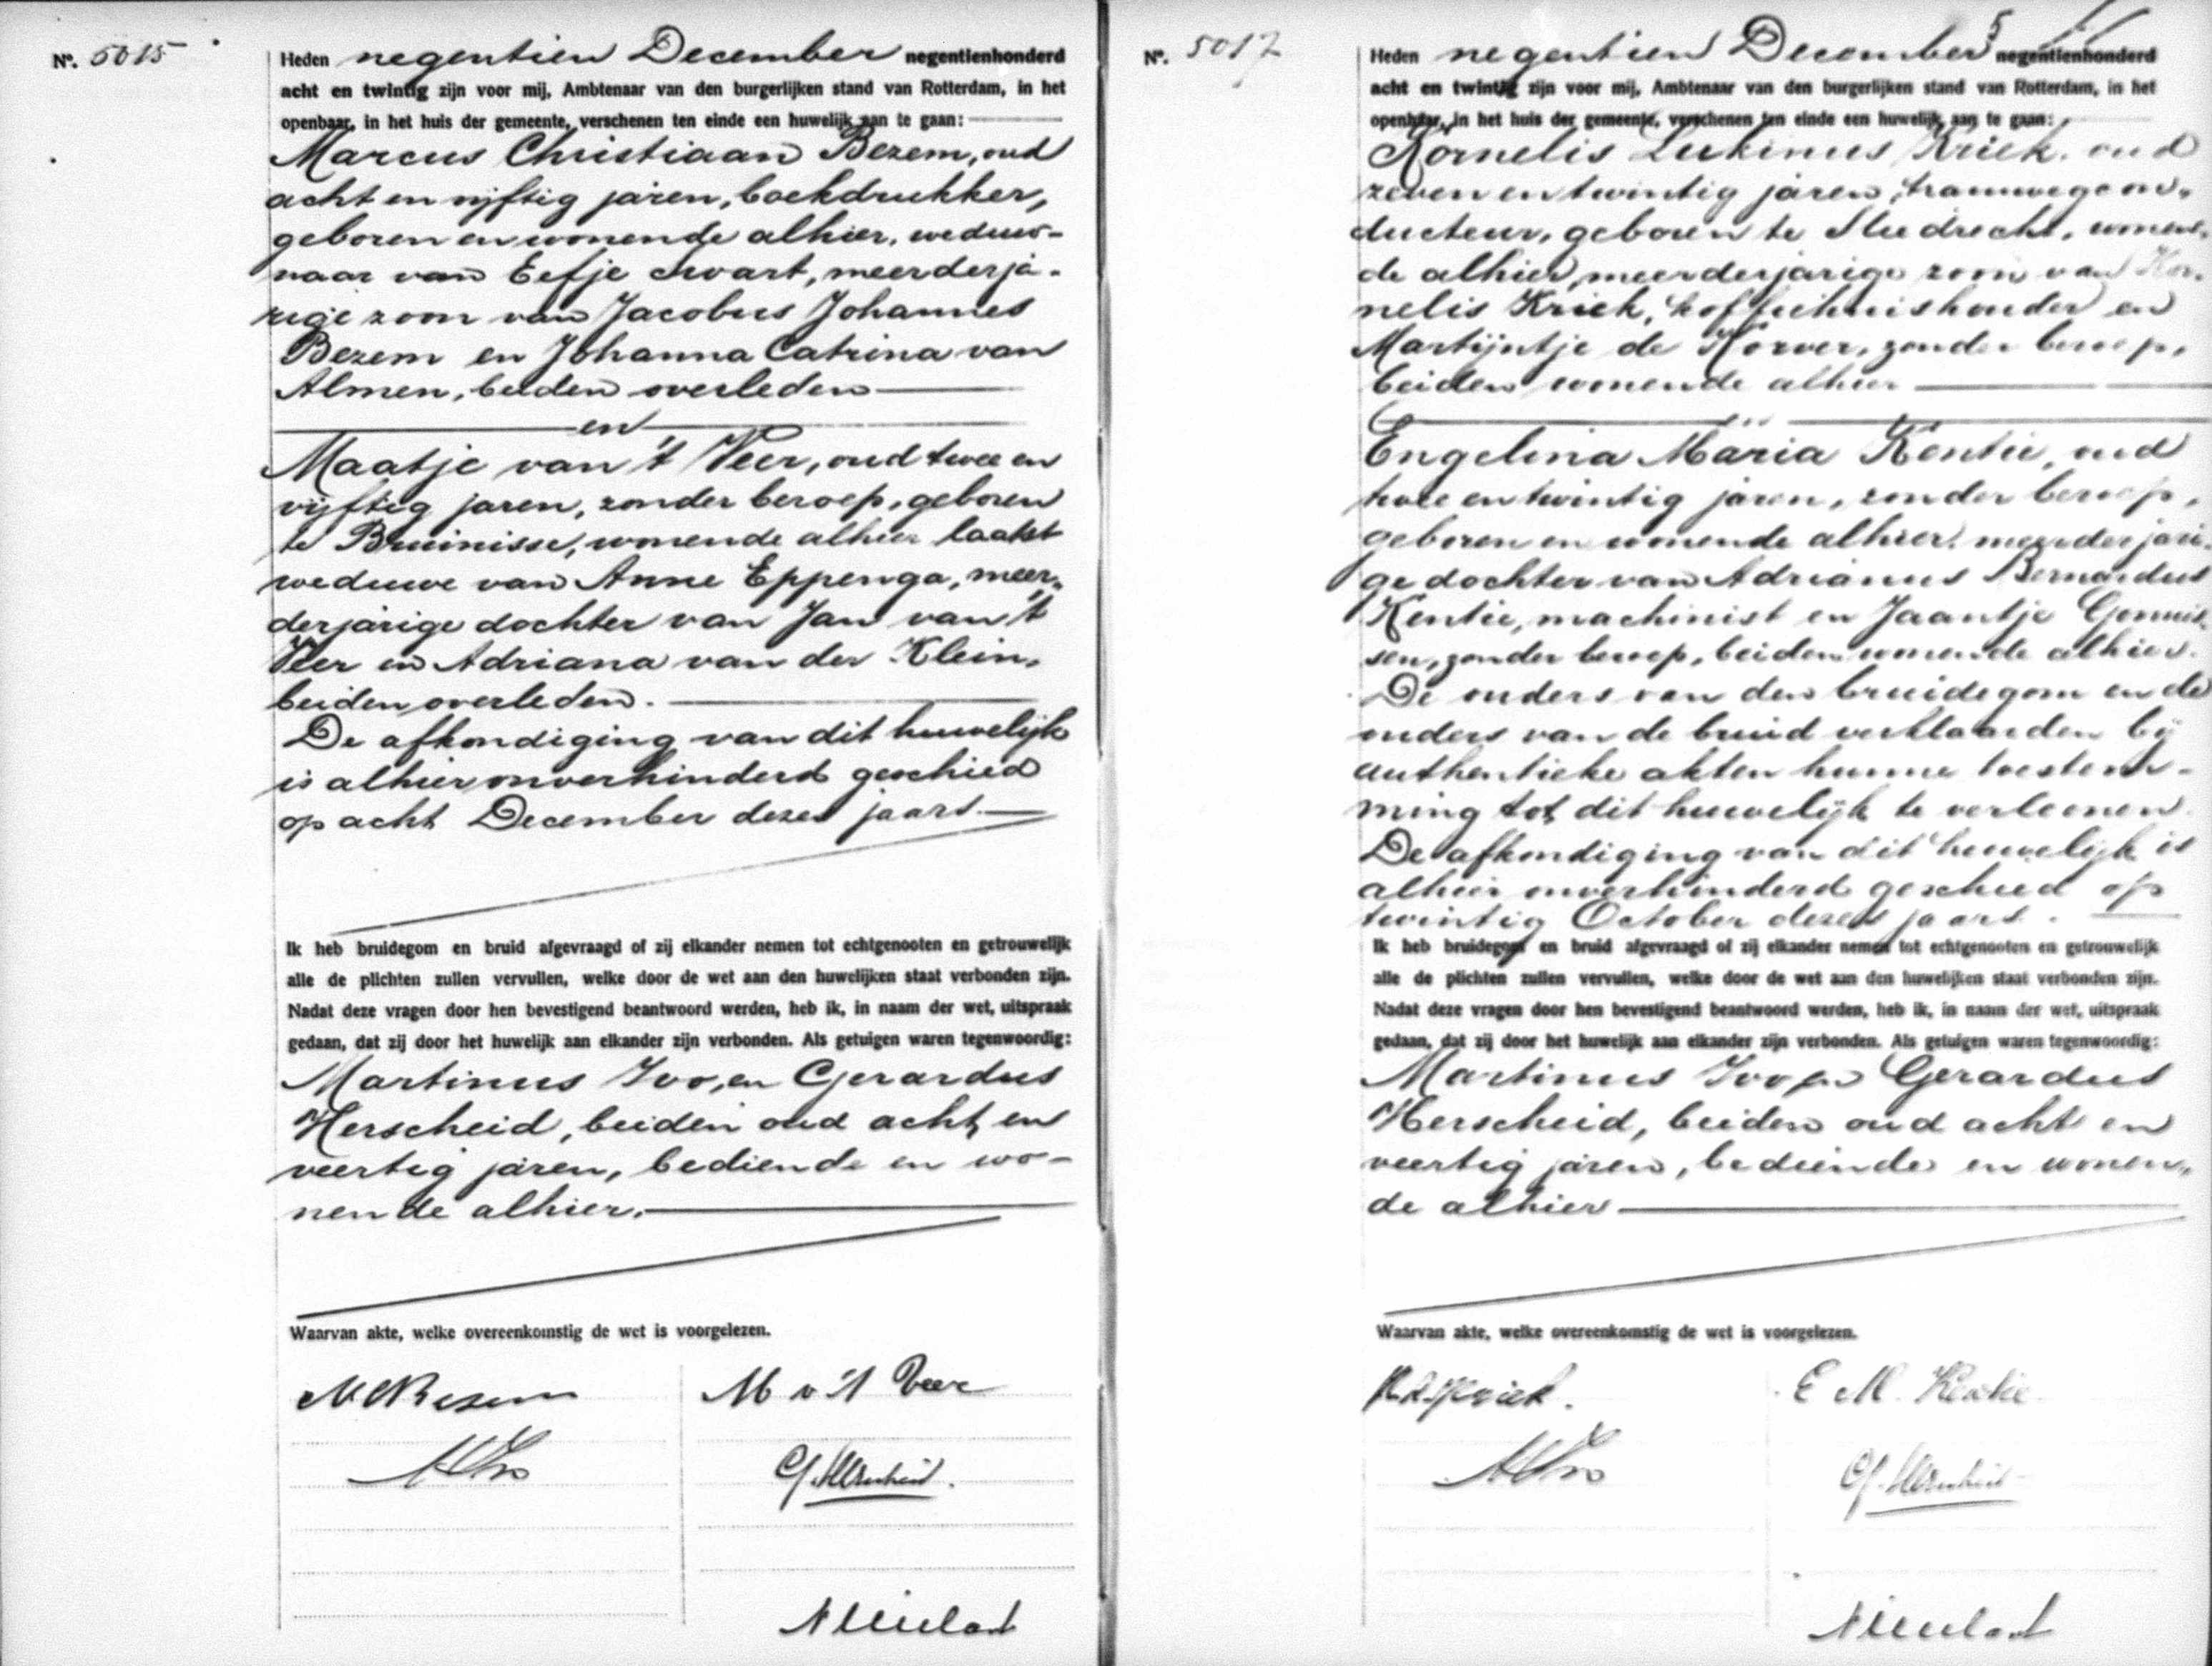 Nº. 5015
Heden negentien December negentienhonderd
acht en twintig zijn voor mij, Ambtenaar van den burgerlijken stand van Rotterdam, in het
openbaar, in het huis der gemeente, verschenen ten einde een huwelijk aan te gaan:
Marcus Christiaan Bezem, oud
acht en vijftig jaren, boekdrukker,
geboren en wonende alhier, weduw-
naar van Eefje Swart, meerderja-
rige zoon van Jacobus Johannes
Bezem en Johanna Catrina van
Almen, beiden overleden
en
Maatje van 't Veer, oud twee en
vijftig jaren, zonder beroep, geboren
te Bruinisse, wonende alhier laatst
weduwe van Anne Eppenga, meer„
derjarige dochter van Jan van 't
Veer en Adriana van der Klein,
beiden overleden.
De afkondiging van dit huwelijk
is alhier onverhinderd geschied
op acht December dezes jaars.
Ik heb bruidegom en bruid afgevraagd of zij elkander nemen tot echtgenooten en getrouwelijk
alle de plichten zullen vervullen, welke door de wet aan den huwelijken staat verbonden zijn.
Nadat deze vragen door hen bevestigend beantwoord werden, heb ik, in naam der wet, uitspraak
gedaan, dat zij door het huwelijk aan elkander zijn verbonden. Als getuigen waren tegenwoordig:
Martinus Ivo, en Gerardus
Herscheid, beiden oud acht en
veertig jaren, bediende en wo-
nende alhier.
Waarvan akte, welke overeenkomstig de wet is voorgelezen.
M C Bezem
M v 't Veer
M Ivo
G. Herscheid.
Nº. 5017
Heden negentien December negentienhonderd
acht en twintig zijn voor mij, Ambtenaar van den burgerlijken stand van Rotterdam, in het
openbaar, in het huis der gemeente, verschenen ten einde een huwelijk aan te gaan:
Kornelis Leekinus Kriek, oud
zeven en twintig jaren, tramwegcon„
ducteur, geboren te Sliedrecht, wonen„
de alhier, meerderjarige zoon van Kor„
nelis Kriek, koffiehuishouder en
Martijntje de Korver, zonder beroep,
beiden wonende alhier
en
Engelina Maria Kentie, oud
twee en twintig jaren, zonder beroep,
geboren en wonende alhier, meerderjari-
ge dochter van Adrianus Bernardus
Kentie, machinist en Jaantje Gennis„
sen, zonder beroep, beiden wonende alhier.
De ouders van den bruidegom en de
ouders van de bruid verklaarden bij
authentieke akten hunne toestem-
ming tot dit huwelijk te verleenen.
De afkondiging van dit huwelijk is
alhier onverhinderd geschied op
twintig October dezes jaars.
Ik heb bruidegom en bruid afgevraagd of zij elkander nemen tot echtgenooten en getrouwelijk
alle de plichten zullen vervullen, welke door de wet aan den huwelijken staat verbonden zijn.
Nadat deze vragen door hen bevestigend beantwoord werden, heb ik, in naam der wet, uitspraak
gedaan, dat zij door het huwelijk aan elkander zijn verbonden. Als getuigen waren tegenwoordig:
Martinus Ivo en Gerardus
Herscheid, beiden oud acht en
veertig jaren, bediende en wonen„
de alhier
Waarvan akte, welke overeenkomstig de wet is voorgelezen.
K. L. Kriek.
E M. Kentie.
M Ivo
G. Herscheid